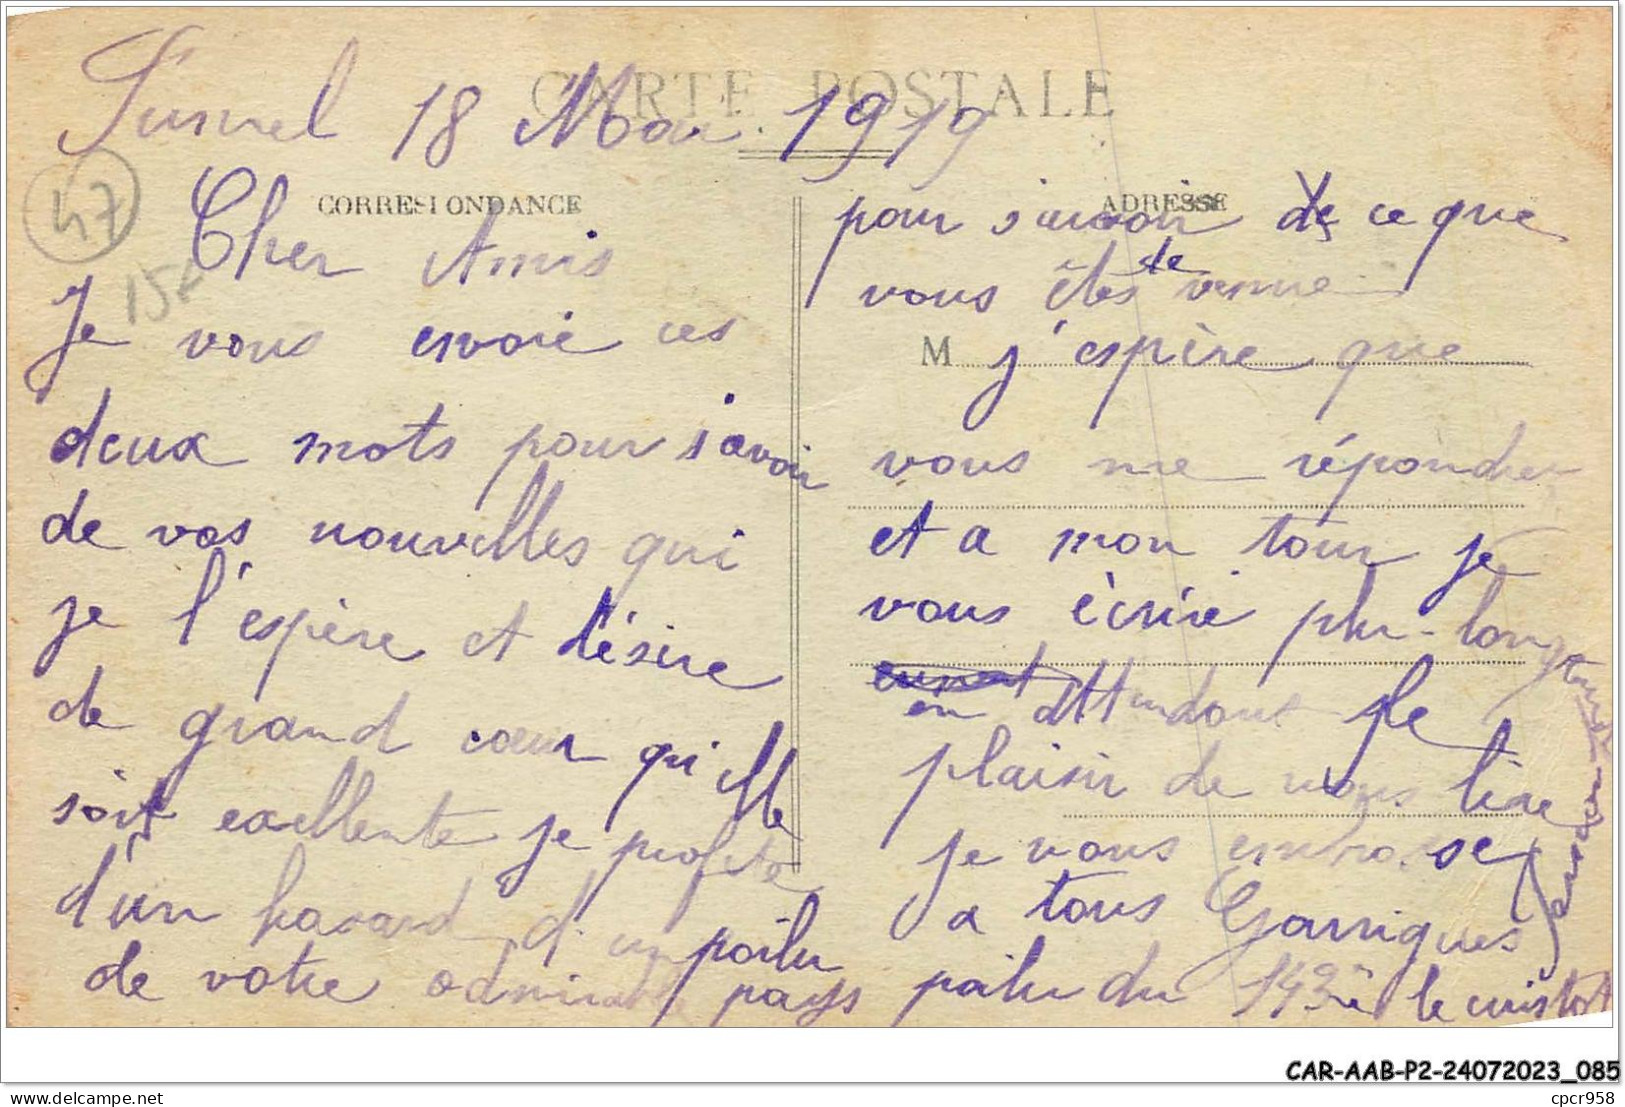 18 Mai 1919
CARTE POSTALE
47
15€
CORRESPONDANCE
Cher Amis
Je vous envoie ces
deux mots pour savoir
de vos nouvelles qui
je l'espère et désire
de grand cœur qui elle
soit exellente je profite
d'un hasard d'un poilu
de votre admirable pays
ADRESSE
pour savoir de ce que
vous êtes de venue
M j'espère que
vous me répondrer
et a mon tour je
vous écrire plu-longtemps
en attendant le
plaisir de vous lire
je vous embrasse
a tous Garrigues
poilu du 143è le cuistot
CAR-AAB-P2-24072023_085
delcampe.net
cpcr958